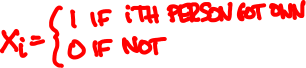 Xi = { 1 IF iTH PERSON GOT OWN
0 IF NOT